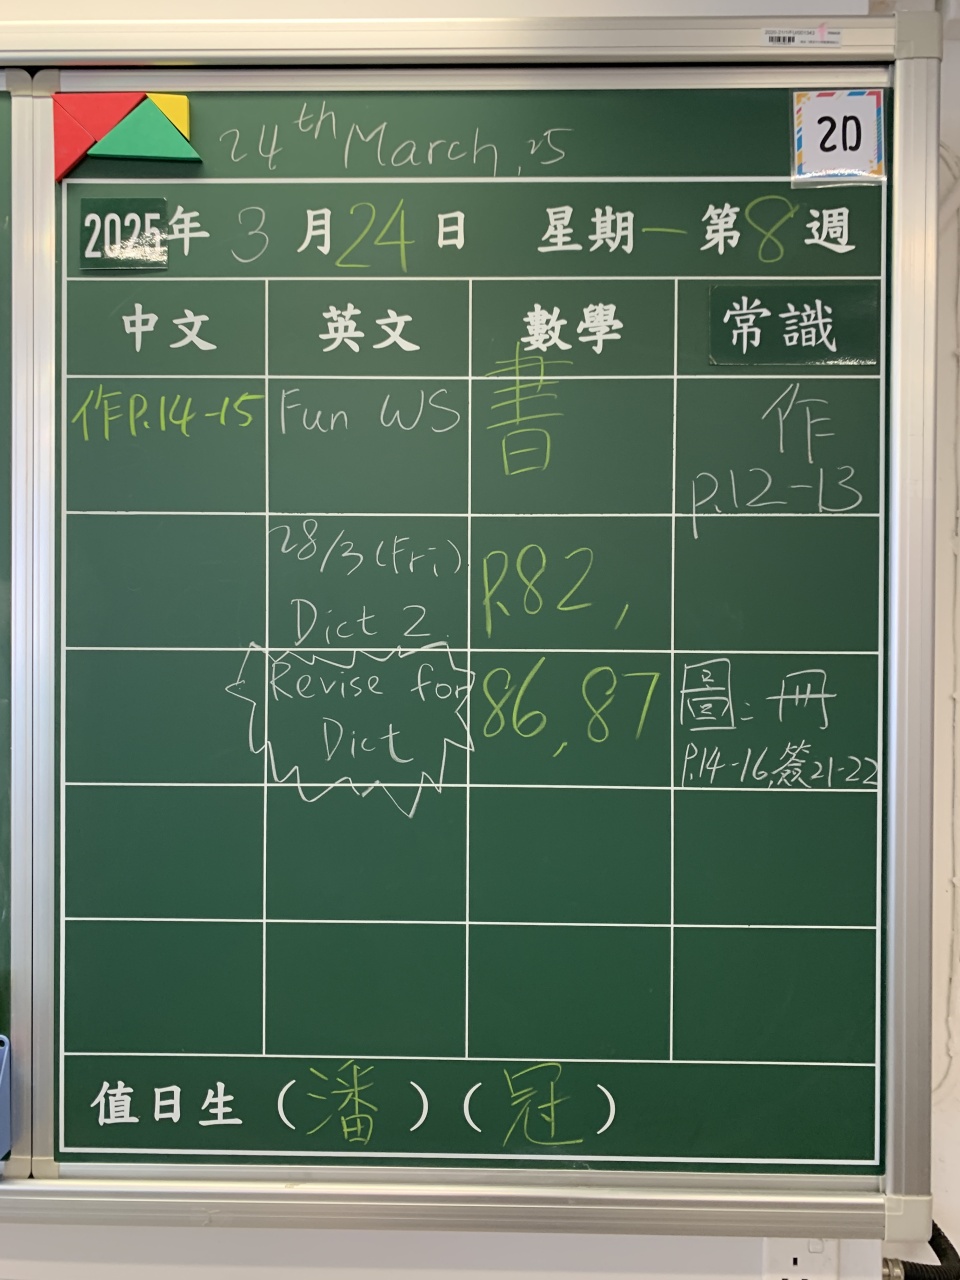 24th March, 25
2D
2025年 3 月 24 日 星期一 第 8 週
中文 英文 數學 常識
作P.14-15 Fun WS 書 作
P.12-13
28/3 (Fri)
Dict 2
P.82,
Revise for
Dict
86, 87
圖:冊
P.14-16,簽21-22
值日生 (潘) (冠)